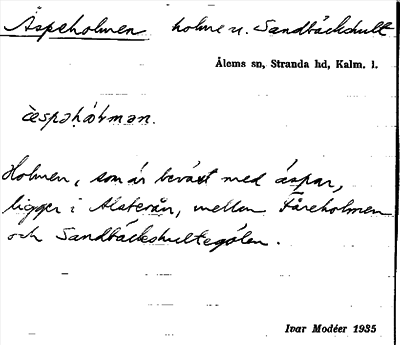 Äspeholmen holme u. Sandbäckshult
Ålems sn, Stranda hd, Kalm. l.
Holmen, som är beväxt med äspar,
ligger i Alsterån, mellan Fåreholmen
och Sandbäckshultegölen.
Ivar Modéer 1935